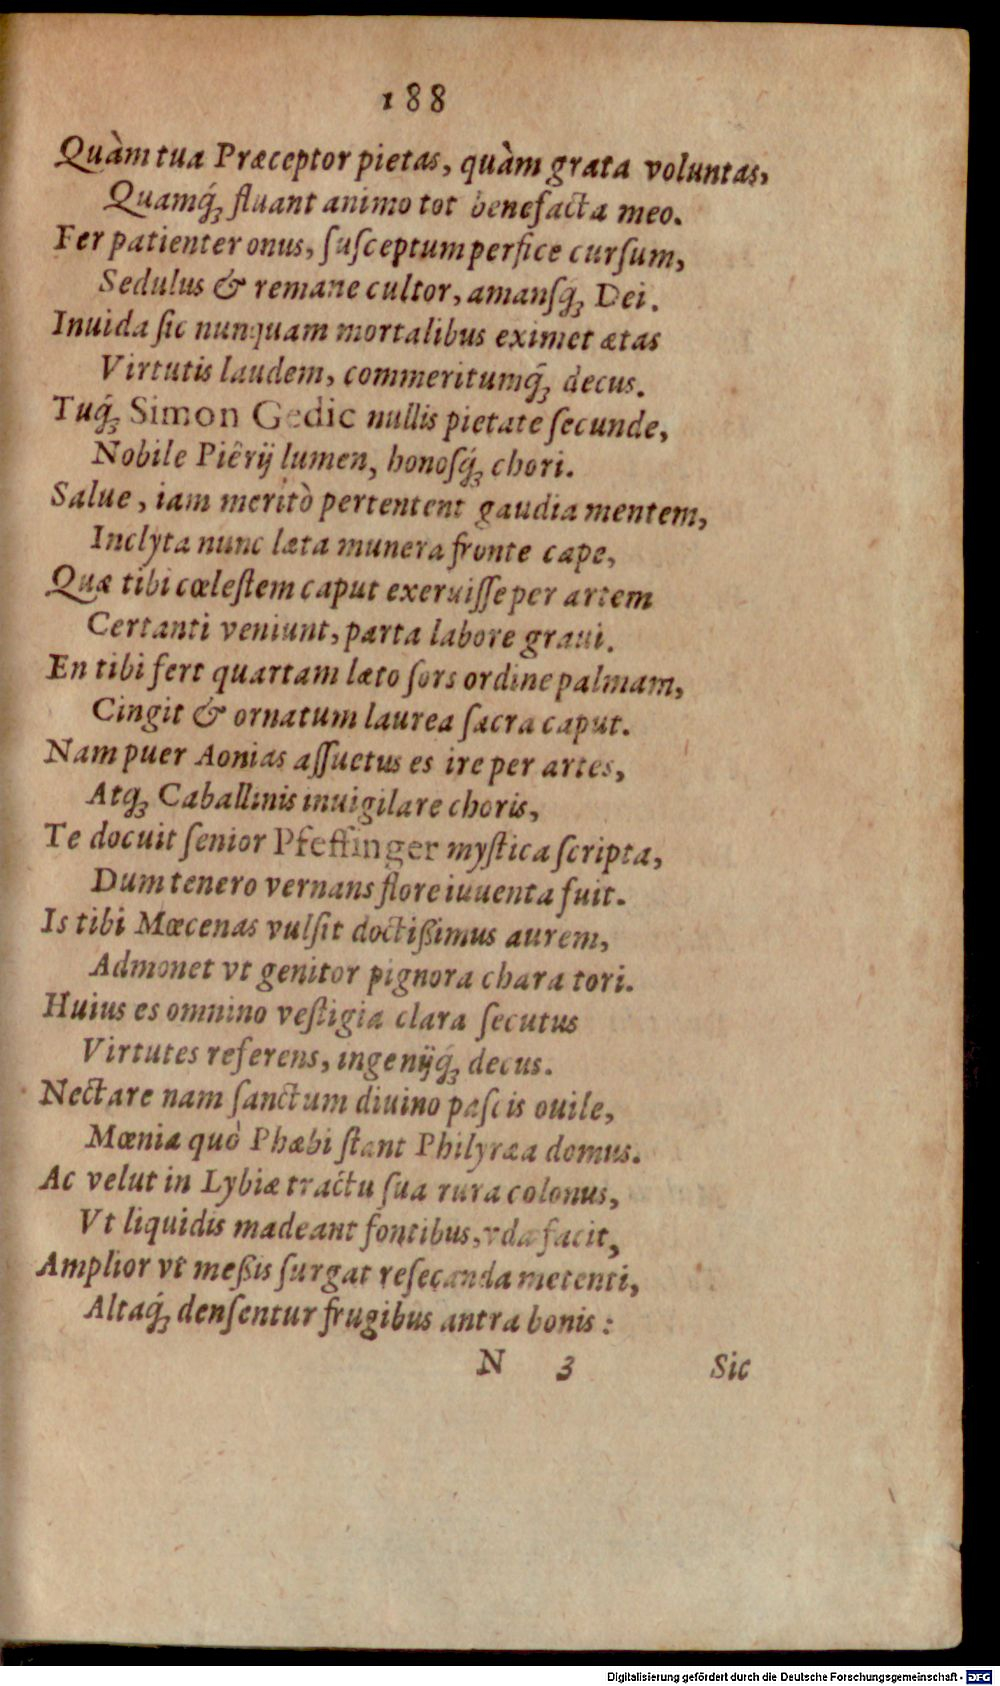 188
Quàm tua Præceptor pietas, quàm grata voluntas,
Quamq́; fluant animo tot benefacta meo.
Fer patienter onus, ſuſceptum perfice curſum,
Sedulus & remane cultor, amanſq́; Dei.
Inuida ſic nunquam mortalibus eximet ætas
Virtutis laudem, commeritumq́; decus.
Tuq́; Simon Gedic nullis pietate ſecunde,
Nobile Piêrij lumen, honoſq́; chori.
Salue, iam meritò pertentent gaudia mentem,
Inclyta nunc læta munera fronte cape,
Quæ tibi cœleſtem caput exeruiſſe per artem
Certanti veniunt, parta labore graui.
En tibi fert quartam læto ſors ordine palmam,
Cingit & ornatum laurea ſacra caput.
Nam puer Aonias aſſuetus es ire per artes,
Atq; Caballinis inuigilare choris,
Te docuit ſenior Pfeffinger myſtica ſcripta,
Dum tenero vernans flore iuuenta fuit.
Is tibi Mœcenas vulſit doctißimus aurem,
Admonet vt genitor pignora chara tori.
Huius es omnino veſtigia clara ſecutus
Virtutes referens, ingenijq́; decus.
Nectare nam ſanctum diuino paſcis ouile,
Mœnia quò Phæbi ſtant Philyræa domus.
Ac velut in Lybiæ tractu ſua rura colonus,
Vt liquidis madeant fontibus, vda facit,
Amplior vt meßis ſurgat reſecanda metenti,
Altaq́; denſentur frugibus antra bonis:
N 3 Sic
Digitalisierung gefördert durch die Deutsche Forschungsgemeinschaft - DFG